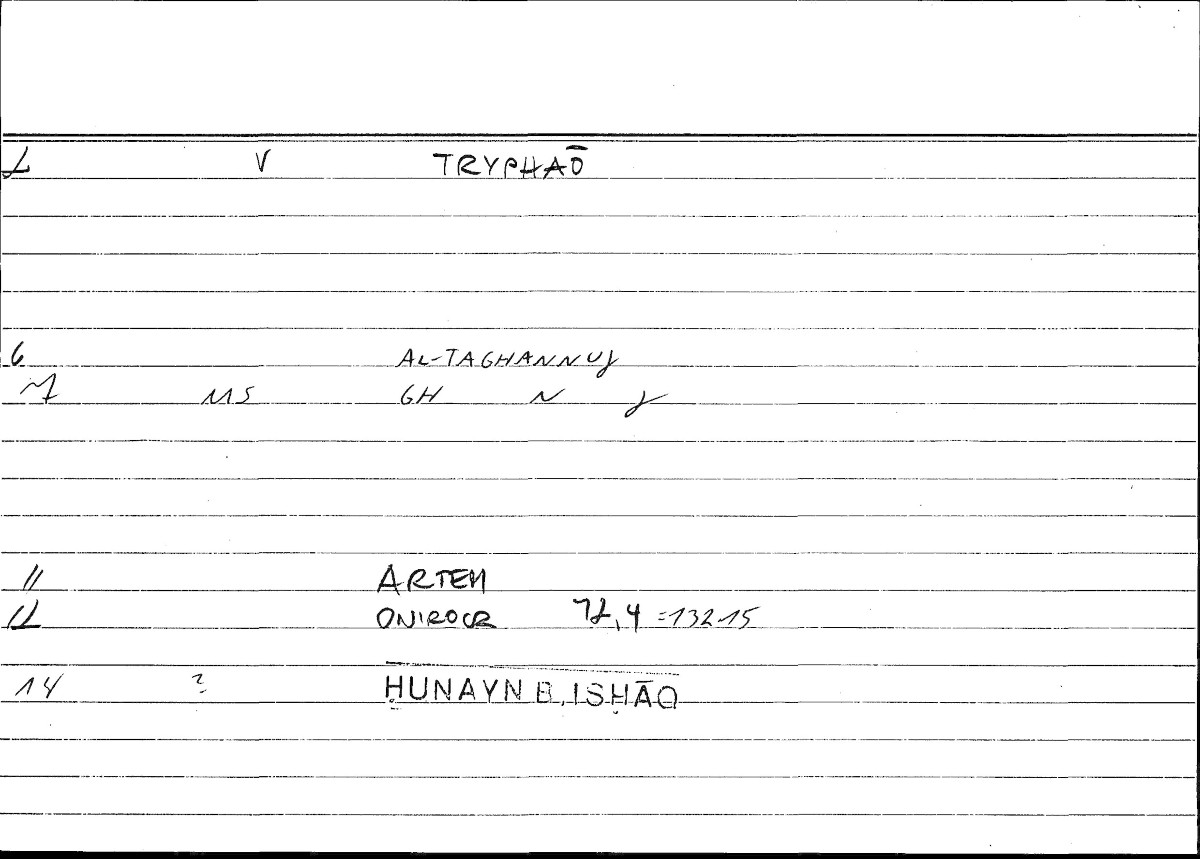 2 V TRYPHAŌ
6 AL-TAGHANNUJ
7 MS GH N J
11 ARTEM
12 ONIROCR 72,4 =132.15
14 ? ḤUNAYN B. ISḤĀQ